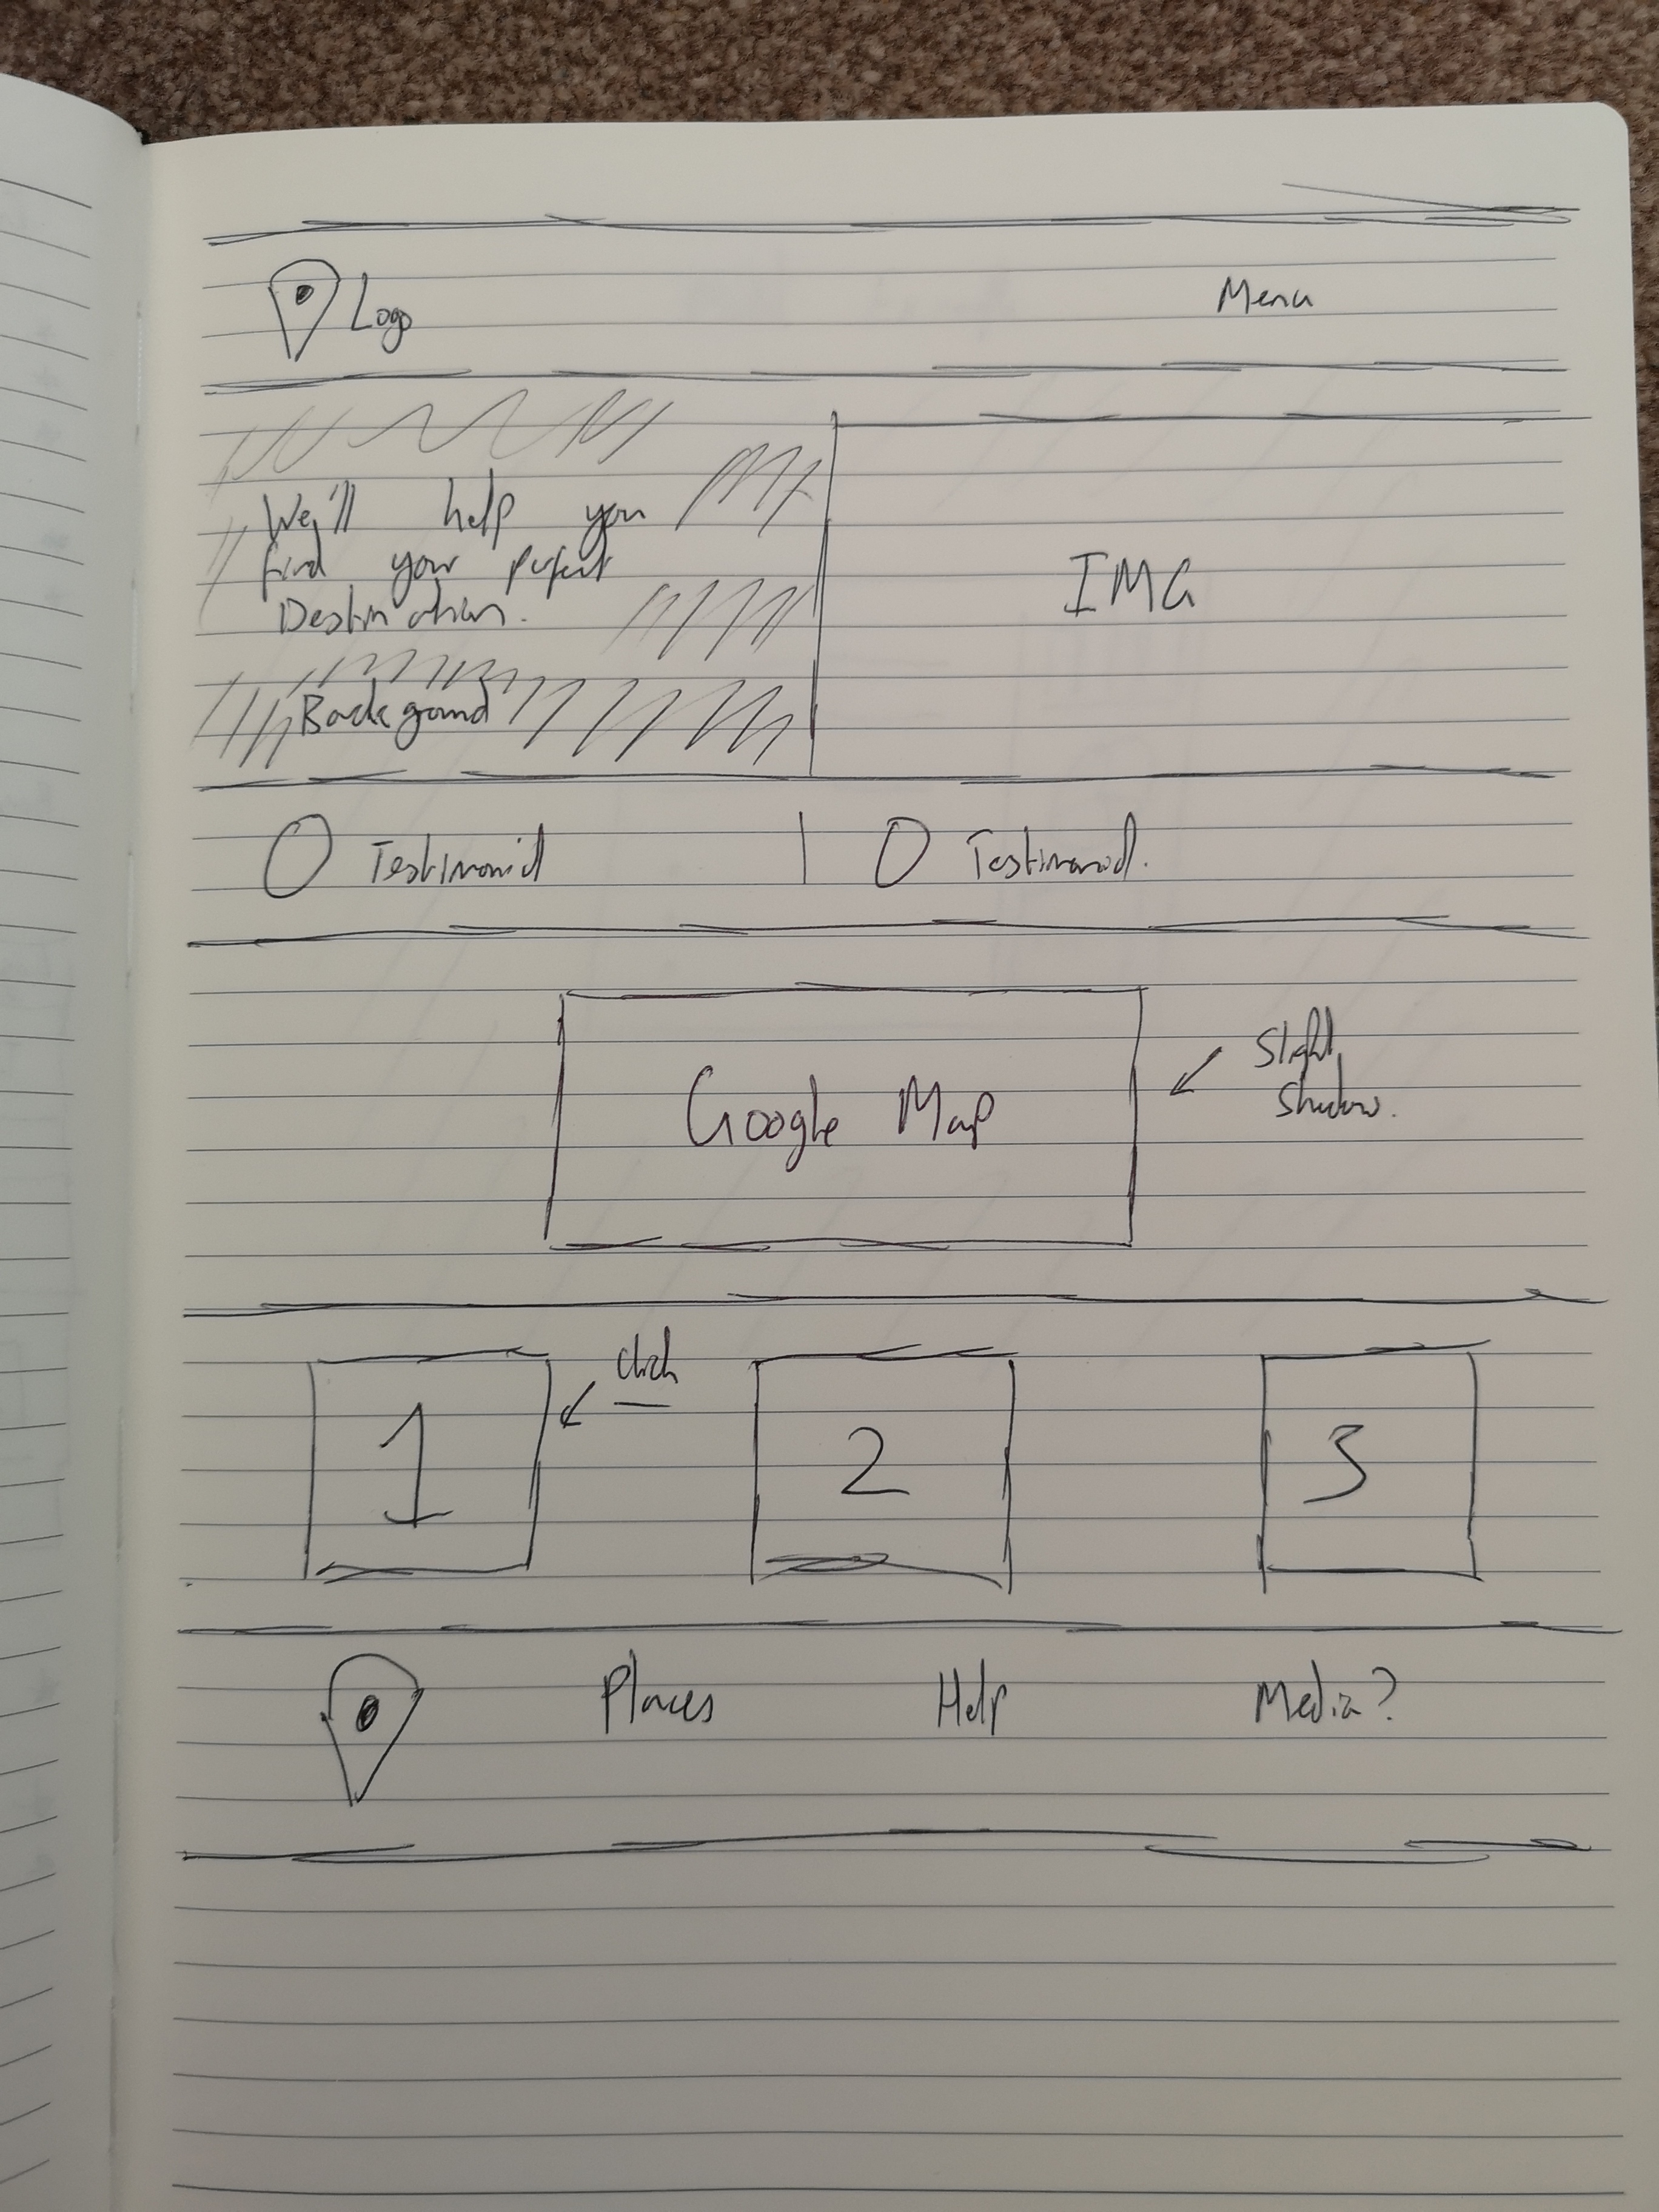 Logo
Menu
We'll help you
find your perfect
Destination.
Background
IMG
Testimonial
Testimonial.
Google Map
Slight
Shadow.
click
1
2
3
Places
Help
Media?